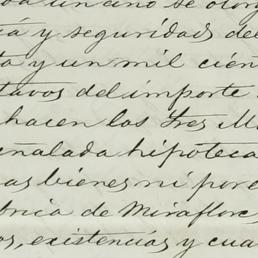 da un año se otorg
ía y seguridad del
ta y un mil cien
tavos del importe
hacen los Tres M
eñalada hipoteca
as bienes ni por e
brica de Miraflore
os, existencias y cua